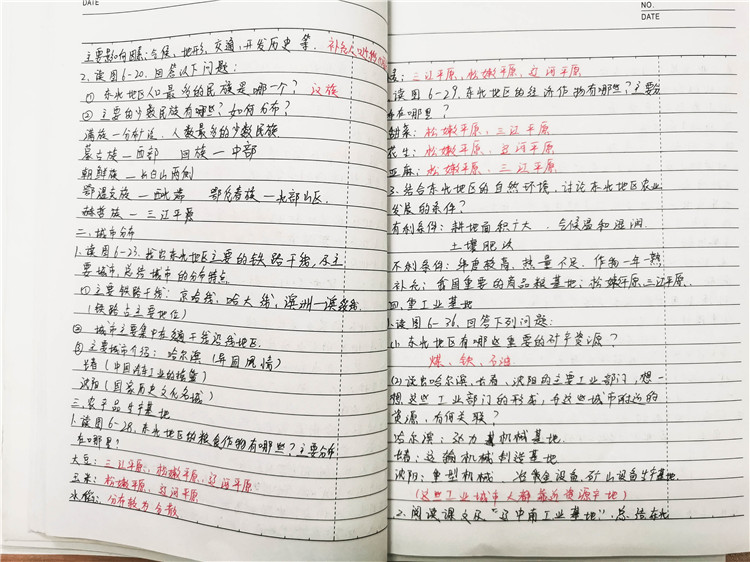 DATE
主要影响因素:气候、地形、交通、开发历史 等.
2、读图6-20.回答以下问题:
① 东北地区人口最多的民族是哪一个? 汉族
② 主要的少数民族有哪些?如何分布?
满族—分布广泛、人数最多的少数民族
蒙古族—西部 回族—中部
朝鲜族—长白山两侧
鄂温克族—西北端 鄂伦春族—北部山区.
赫哲族—三江平原
二、城市分布
1、读图6-23.找出东北地区主要的铁路干线,及主
要城市,总结城市的分布特点
①主要铁路干线:京哈线、哈大线、滨洲—滨绥线.
(铁路占主要地位)
② 城市主要集中在交通干线沿线地区.
③ 主要城市介绍:哈尔滨(异国风情)
长春(中国汽车工业的摇篮)
沈阳(国家历史文化名城)
三、农产品生产基地
1、读图6-28.东北地区的粮食作物有哪些?主要分布
在哪里?
大豆:三江平原、松嫩平原、辽河平原
玉米:松嫩平原、辽河平原
水稻:分布较为分散
NO.
DATE
麦:三江平原、松嫩平原、辽河平原
读图6-29.东北地区的经济作物有哪些?主要分
布在哪里?
甜菜:松嫩平原、三江平原
花生:松嫩平原、辽河平原
亚麻:松嫩平原、三江平原
3、结合东北地区的自然环境,讨论东北地区农业
发展的条件?
有利条件:耕地面积广大、气候温和湿润.
土壤肥沃
不利条件:纬度较高,热量不足,作物一年一熟
补充:我国重要的商品粮基地:松嫩平原、三江平原.
四、重工业基地
1、读图6-36.回答下列问题:
(1)东北地区有哪些重要的矿产资源?
煤、铁、石油
(2)说出哈尔滨、长春、沈阳的主要工业部门,想一
想这些工业部门的形成,与这些城市附近的
资源,有何关联?
哈尔滨:动力机械基地.
长春:运输机械制造基地
沈阳:重型机械、冶金设备、矿山设备生产基地.
(这些工业城市大都靠近资源产地)
2、阅读课文及"辽中南工业基地",总结东北